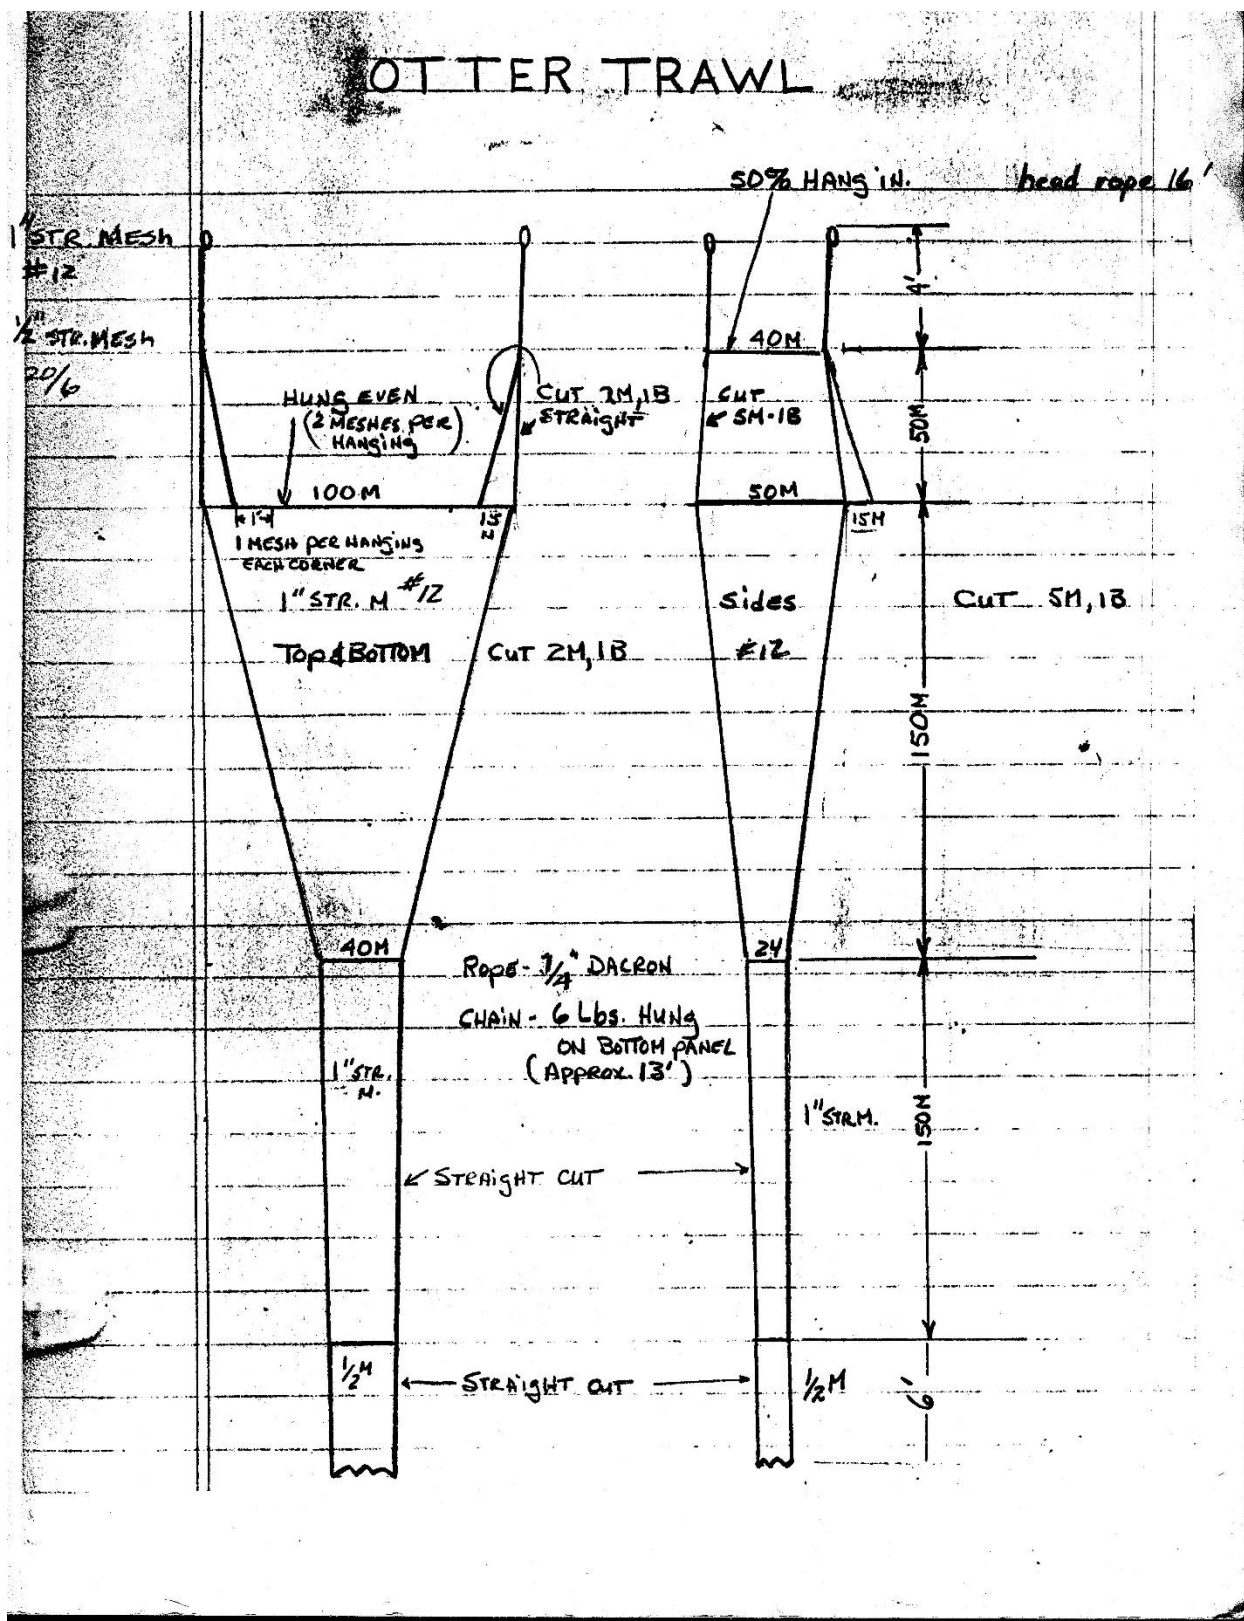 OTTER TRAWL
50% HANG IN.
head rope 16'
1" STR. MESH
#12
1/2" STR. MESH
20/6
4'
40M
HUNG EVEN
(2 MESHES PER)
HANGING
CUT 2M, 1B
STRAIGHT
CUT
5M-1B
50M
100M
50M
1'
15
2
15M
1 MESH PER HANGING
EACH CORNER
1" STR. M #12
Top & BOTTOM
CUT 2M, 1B
Sides
#12
CUT 5M, 1B
150M
40M
24
Rope - 1/4" DACRON
CHAIN - 6 Lbs. HUNG
ON BOTTOM PANEL
(APPROX. 13')
1" STR.
M.
1" STR M.
150M
STRAIGHT CUT
1/2 M
STRAIGHT CUT
1/2 M
6'